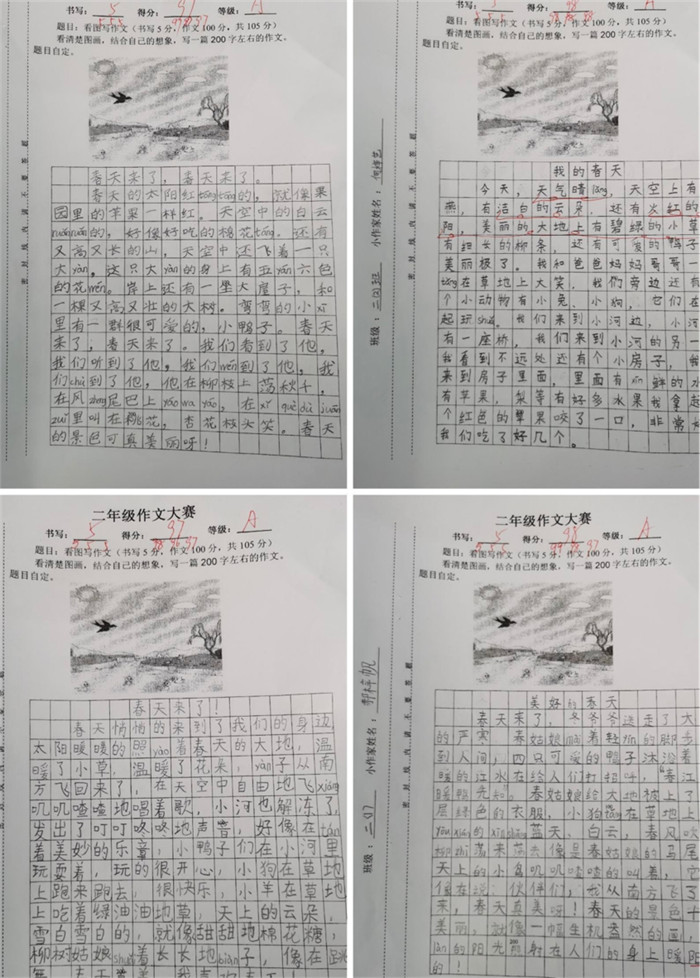 书写：5 得分：97 等级：A
5 5 5 97 97
题目：看图写作文（书写5分，作文100分，共105分）
看清楚图画，结合自己的想象，写一篇200字左右的作文。
题目自定。
春天来了，春天来了。
春天的太阳红tōngtōng的，就像果
园里的苹果一样红。天空中的白云
nuǎnnuǎn的，好像好吃的棉花táng，还有
又高又长的山，天空中还飞着一只
大yàn。这只大yàn的身上有五yán六色
的花wén。岸上还有一坐大房子，和
一棵又高又壮的大树。弯弯的小xī
里有一群很可爱的，小鸭子。春天
来了，春天来了。我们看到了他，
我们听到了他，我们wén到了他，我
们chù到了他，他在柳枝上荡秋千，
在风zheng尾巴上yáo wa yáo，在xǐ què dù juān
zuǐ里叫在桃花，杏花枝头笑。春天
的景色可真美丽呀！
书写：5 得分：98 等级：A
5 5 5
题目：看图写作文（书写5分，作文100分，共105分）
看清楚图画，结合自己的想象，写一篇200字左右的作文。
题目自定。
班级：二(2)班 小作家姓名：
密封线内请不要答题
我的春天
今天，天气晴lǎng，天空上有
燕，有洁白的云朵，还有火红的
阳，美丽的大地上有碧绿的小草
有细长的柳条，还有可爱的鸭子
美丽极了。我和爸爸妈妈哥哥一
tǎng在草地上大笑，我们旁边还有
个小动物有小兔、小狗，它们在
起玩shuǎ。我们来到小河边，小河
有一座桥，我们来到小河的另一
我看到不远处还有个小房子，我
来到房子里面，里面有xīn鲜的水
有苹果，梨等有好多水果我拿起
个红色的苹果咬了一口，非常好
我们吃了好几个。
二年级作文大赛
书写：5 得分：97 等级：A
5 5 5 98 96 97
题目：看图写作文（书写5分，作文100分，共105分）
看清楚图画，结合自己的想象，写一篇200字左右的作文。
题目自定。
春天来了！
春天悄悄的来到了我们的身边
太阳暖暖的照yào着春天的大地，温
暖了小草，温暖了花朵，yàn子从南
方飞回来了，在天空中自由地飞xiáng
叽叽喳喳地唱着歌，小河也解冻了，
发出了叮叮咚咚地声音，好像在tán
着美妙的乐章，小鸭子们在小河里
玩耍着，玩的很开心，小狗在草地
上跑来跑去，很快乐，小羊在草地
上吃着绿油油地草，天上的云朵，
雪白雪白的，就像甜甜地棉花糖，
柳树姑娘shuǎi着长长地biàn子，像在跳
二年级作文大赛
书写：5 得分：98 等级：A
5 5 5 99 98 97
题目：看图写作文（书写5分，作文100分，共105分）
看清楚图画，结合自己的想象，写一篇200字左右的作文。
题目自定。
班级： 小作家姓名：
密封线内请不要答题
美好的春天
春天来了，冬爷爷送走了大
的严寒，春姑娘mài着轻盈的脚步
到人间，四只可爱的鸭子沐浴着
暖的江水在给人们打招呼，"春江
暖鸭先知。"春姑娘给大地披上了
层绿色的衣服，小狗tǎng在草地上
蓝天、白云，春风吹
柳zhī荡来荡去像是春姑娘的马尾
天上的小鸟叽叽喳喳的叫着，它
像在说：伙伴们，我从南方飞了
来，春天真美呀！春天的景色十
美丽，就像一幅生机盎然的画
làn的阳光照射在人们的身上暖
的！